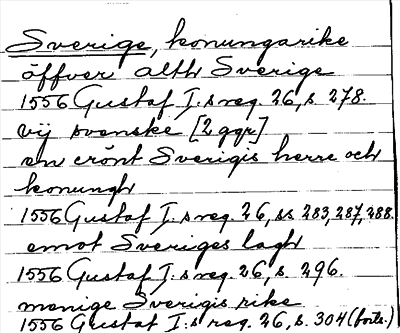 Sverige, konungarike
öffver alth Sverige
1556 Gustaf I:s reg. 26, s. 278.
vij svenske [2 ggr]
en crönt Sverigis herre och
konungh
1556 Gustaf I:s reg. 26, ss. 283, 287, 288.
emot Sveriges lagh
1556 Gustaf I:s reg. 26, s. 296.
menige Sverigis rike
1556 Gustaf I:s reg. 26, s. 304 (forts.)